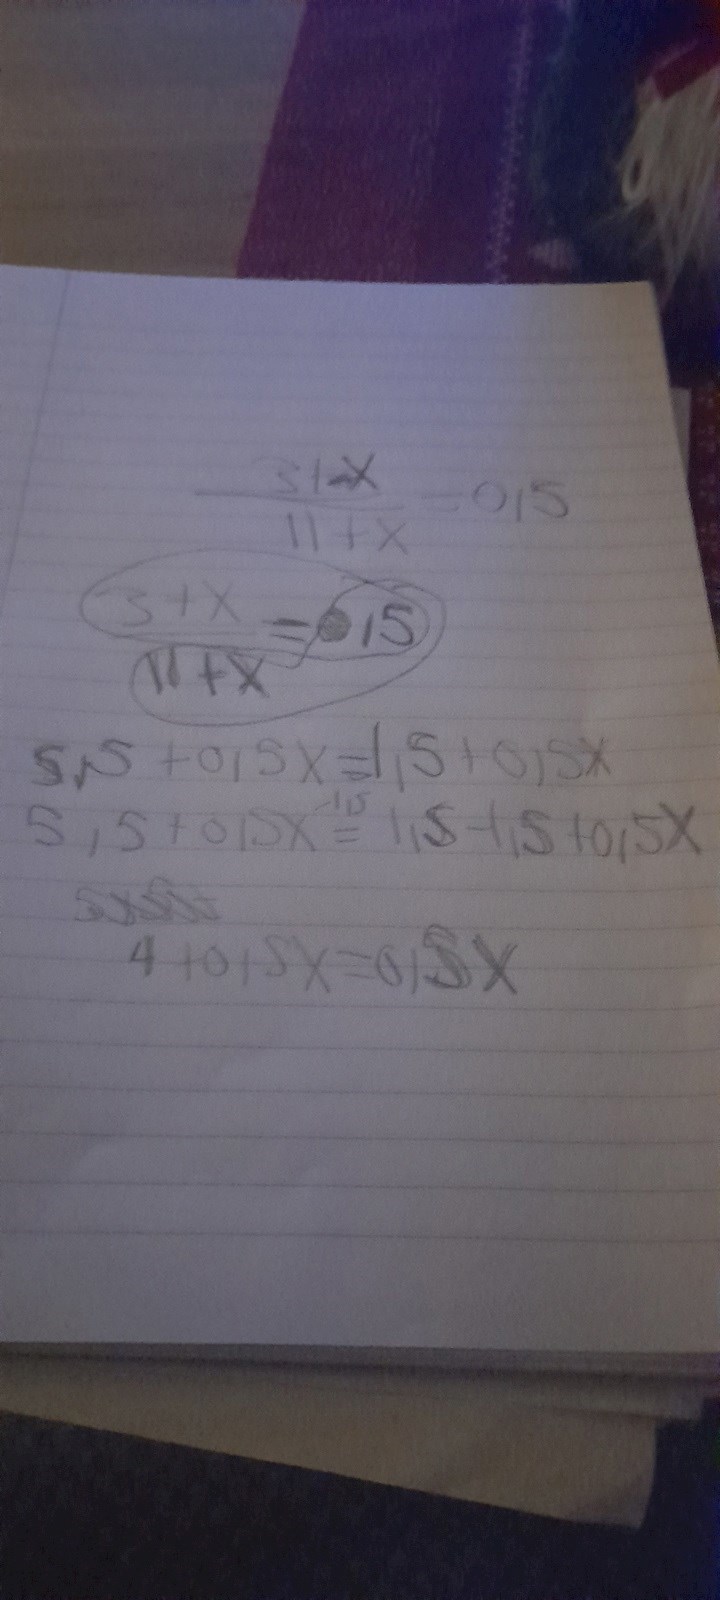 3+x
11+x
=0,5
3+x
11+x
= ,5
5,5+0,5x=1,5+0,5x
-1,5
5,5+0,5x=1,5-1,5+0,5x
4+0,5x=0,5x